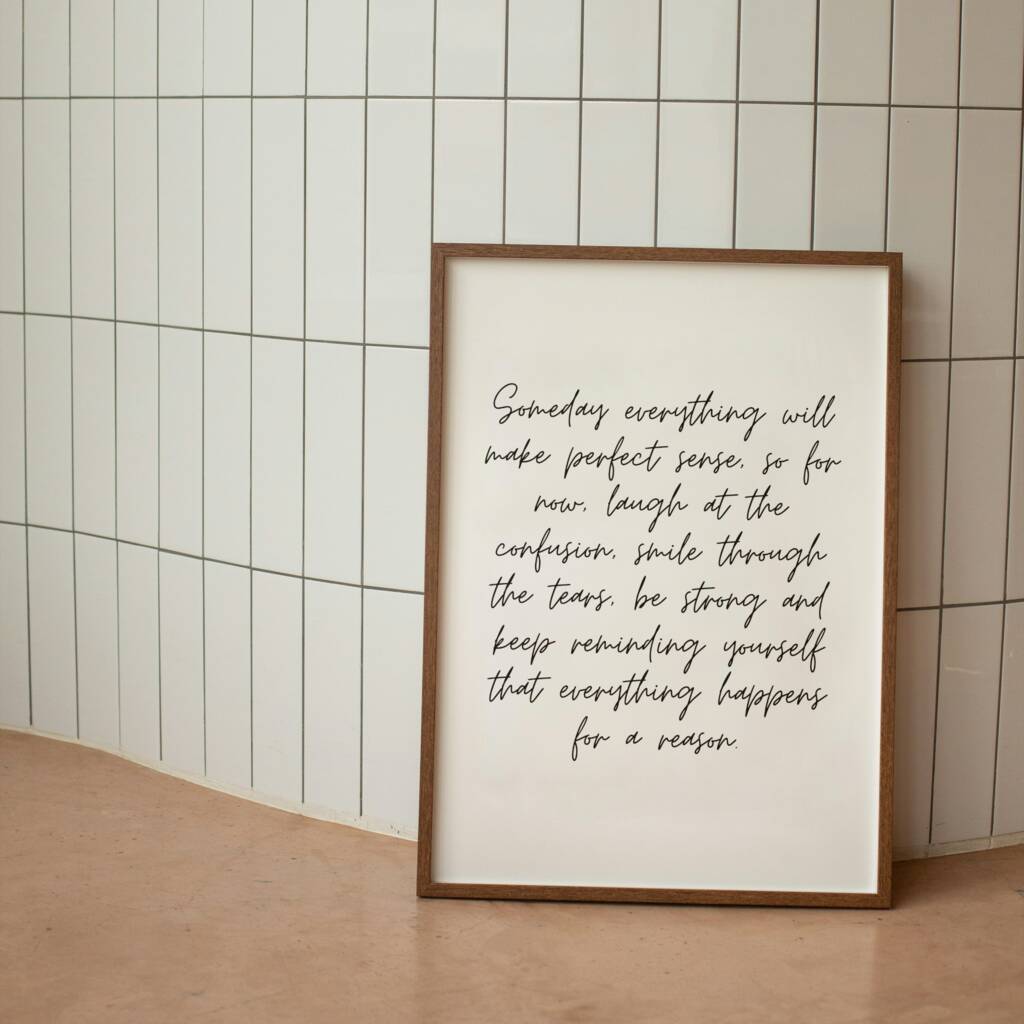 Someday everything will
make perfect sense, so for
now, laugh at the
confusion, smile through
the tears, be strong and
keep reminding yourself
that everything happens
for a reason.